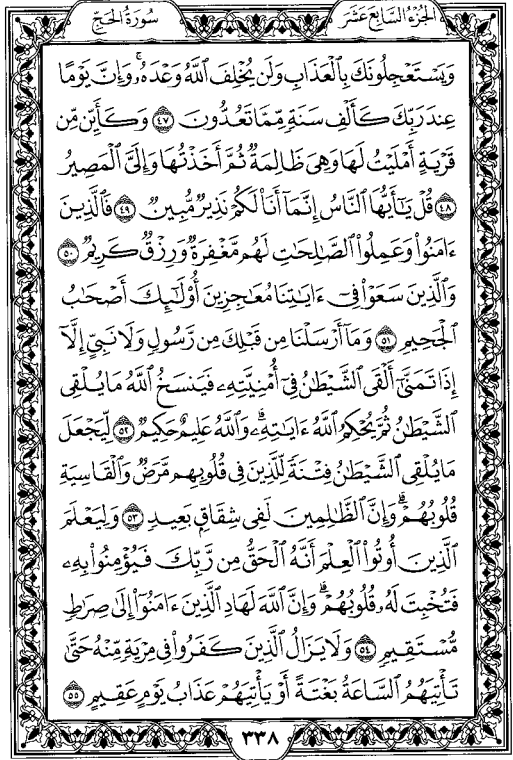 الجزء السابع عشر
سورة الحج
وَيَسْتَعْجِلُونَكَ بِالْعَذَابِ وَلَن يُخْلِفَ اللَّهُ وَعْدَهُۥ ۚ وَإِنَّ يَوْمًا
عِندَ رَبِّكَ كَأَلْفِ سَنَةٍ مِّمَّا تَعُدُّونَ ٤٧ وَكَأَيِّن مِّن
قَرْيَةٍ أَمْلَيْتُ لَهَا وَهِىَ ظَالِمَةٌ ثُمَّ أَخَذْتُهَا وَإِلَىَّ الْمَصِيرُ
٤٨ قُلْ يَٰٓأَيُّهَا النَّاسُ إِنَّمَآ أَنَا۠ لَكُمْ نَذِيرٌ مُّبِينٌ ٤٩ فَالَّذِينَ
ءَامَنُوا۟ وَعَمِلُوا۟ الصَّٰلِحَٰتِ لَهُم مَّغْفِرَةٌ وَرِزْقٌ كَرِيمٌ ٥٠
وَالَّذِينَ سَعَوْا۟ فِىٓ ءَايَٰتِنَا مُعَٰجِزِينَ أُو۟لَٰٓئِكَ أَصْحَٰبُ
الْجَحِيمِ ٥١ وَمَآ أَرْسَلْنَا مِن قَبْلِكَ مِن رَّسُولٍ وَلَا نَبِىٍّ إِلَّآ
إِذَا تَمَنَّىٰٓ أَلْقَى الشَّيْطَٰنُ فِىٓ أُمْنِيَّتِهِۦ فَيَنسَخُ اللَّهُ مَا يُلْقِى
الشَّيْطَٰنُ ثُمَّ يُحْكِمُ اللَّهُ ءَايَٰتِهِۦ ۗ وَاللَّهُ عَلِيمٌ حَكِيمٌ ٥٢ لِّيَجْعَلَ
مَا يُلْقِى الشَّيْطَٰنُ فِتْنَةً لِّلَّذِينَ فِى قُلُوبِهِم مَّرَضٌ وَالْقَاسِيَةِ
قُلُوبُهُمْ ۗ وَإِنَّ الظَّٰلِمِينَ لَفِى شِقَاقٍۭ بَعِيدٍ ٥٣ وَلِيَعْلَمَ
الَّذِينَ أُوتُوا۟ الْعِلْمَ أَنَّهُ الْحَقُّ مِن رَّبِّكَ فَيُؤْمِنُوا۟ بِهِۦ
فَتُخْبِتَ لَهُۥ قُلُوبُهُمْ ۗ وَإِنَّ اللَّهَ لَهَادِ الَّذِينَ ءَامَنُوٓا۟ إِلَىٰ صِرَٰطٍ
مُّسْتَقِيمٍ ٥٤ وَلَا يَزَالُ الَّذِينَ كَفَرُوا۟ فِى مِرْيَةٍ مِّنْهُ حَتَّىٰ
تَأْتِيَهُمُ السَّاعَةُ بَغْتَةً أَوْ يَأْتِيَهُمْ عَذَابُ يَوْمٍ عَقِيمٍ ٥٥
٣٣٨